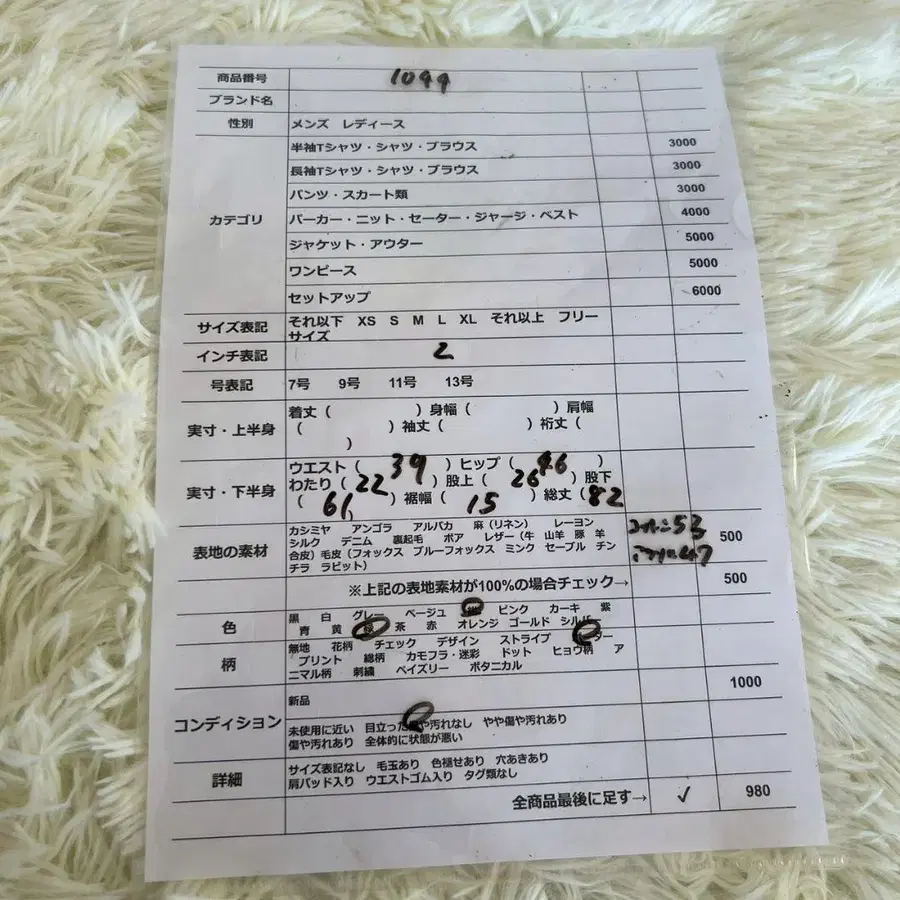 商品番号 1099
ブランド名
性別 メンズ レディース
カテゴリ
半袖Tシャツ・シャツ・ブラウス 3000
長袖Tシャツ・シャツ・ブラウス 3000
パンツ・スカート類 3000
パーカー・ニット・セーター・ジャージ・ベスト 4000
ジャケット・アウター 5000
ワンピース 5000
セットアップ 6000
サイズ表記 それ以下 XS S M L XL それ以上 フリー
サイズ
インチ表記 2
号表記 7号 9号 11号 13号
実寸・上半身 着丈（ ）身幅（ ）肩幅
（ ）袖丈（ ）裄丈（
）
実寸・下半身 ウエスト（ 39 ）ヒップ（ 46 ）
わたり（ 22 ）股上（ 26 ）股下
（ 61 ）裾幅（ 15 ）総丈（ 82
表地の素材 カシミヤ アンゴラ アルパカ 麻（リネン） レーヨン
シルク デニム 裏起毛 ボア レザー（牛 山羊 豚 羊
合皮）毛皮（フォックス ブルーフォックス ミンク セーブル チン
チラ ラビット） 53 47 500
※上記の表地素材が100%の場合チェック→ 500
色 黒 白 グレー ベージュ ピンク カーキ 紫
青 黄 茶 赤 オレンジ ゴールド シルバー
柄 無地 花柄 チェック デザイン ストライプ
プリント 総柄 カモフラ・迷彩 ドット ヒョウ柄 ア
ニマル柄 刺繍 ペイズリー ボタニカル
コンディション 新品 1000
未使用に近い 目立った や汚れなし やや傷や汚れあり
傷や汚れあり 全体的に状態が悪い
詳細 サイズ表記なし 毛玉あり 色褪せあり 穴あきあり
肩パッド入り ウエストゴム入り タグ類なし
全商品最後に足す→ ✓ 980